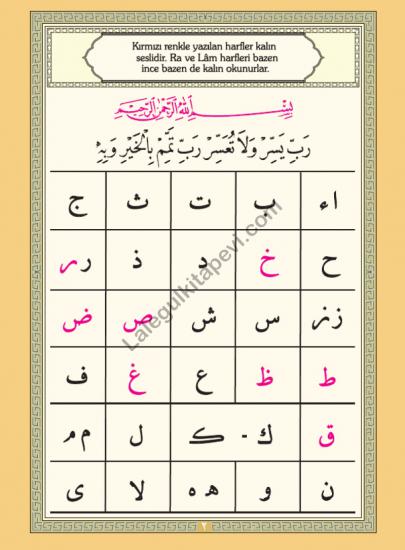 Kırmızı renkle yazılan harfler kalın
seslidir. Ra ve Lâm harfleri bazen
ince bazen de kalın okunurlar.
بِسْمِ اللّٰهِ الرَّحْمٰنِ الرَّحِيمِ
رَبِّ يَسِّرْ وَلَا تُعَسِّرْ رَبِّ تَمِّمْ بِالْخَيْرِ وَبِهِ
ا ء ب ت ث ج
ح خ د ذ ر ر
ز ز س ش ص ض
ط ظ ع غ ف
ق ك - ڪ ل م م
ن و ه ه لا ى
٢
Lalegulkitapevi.com